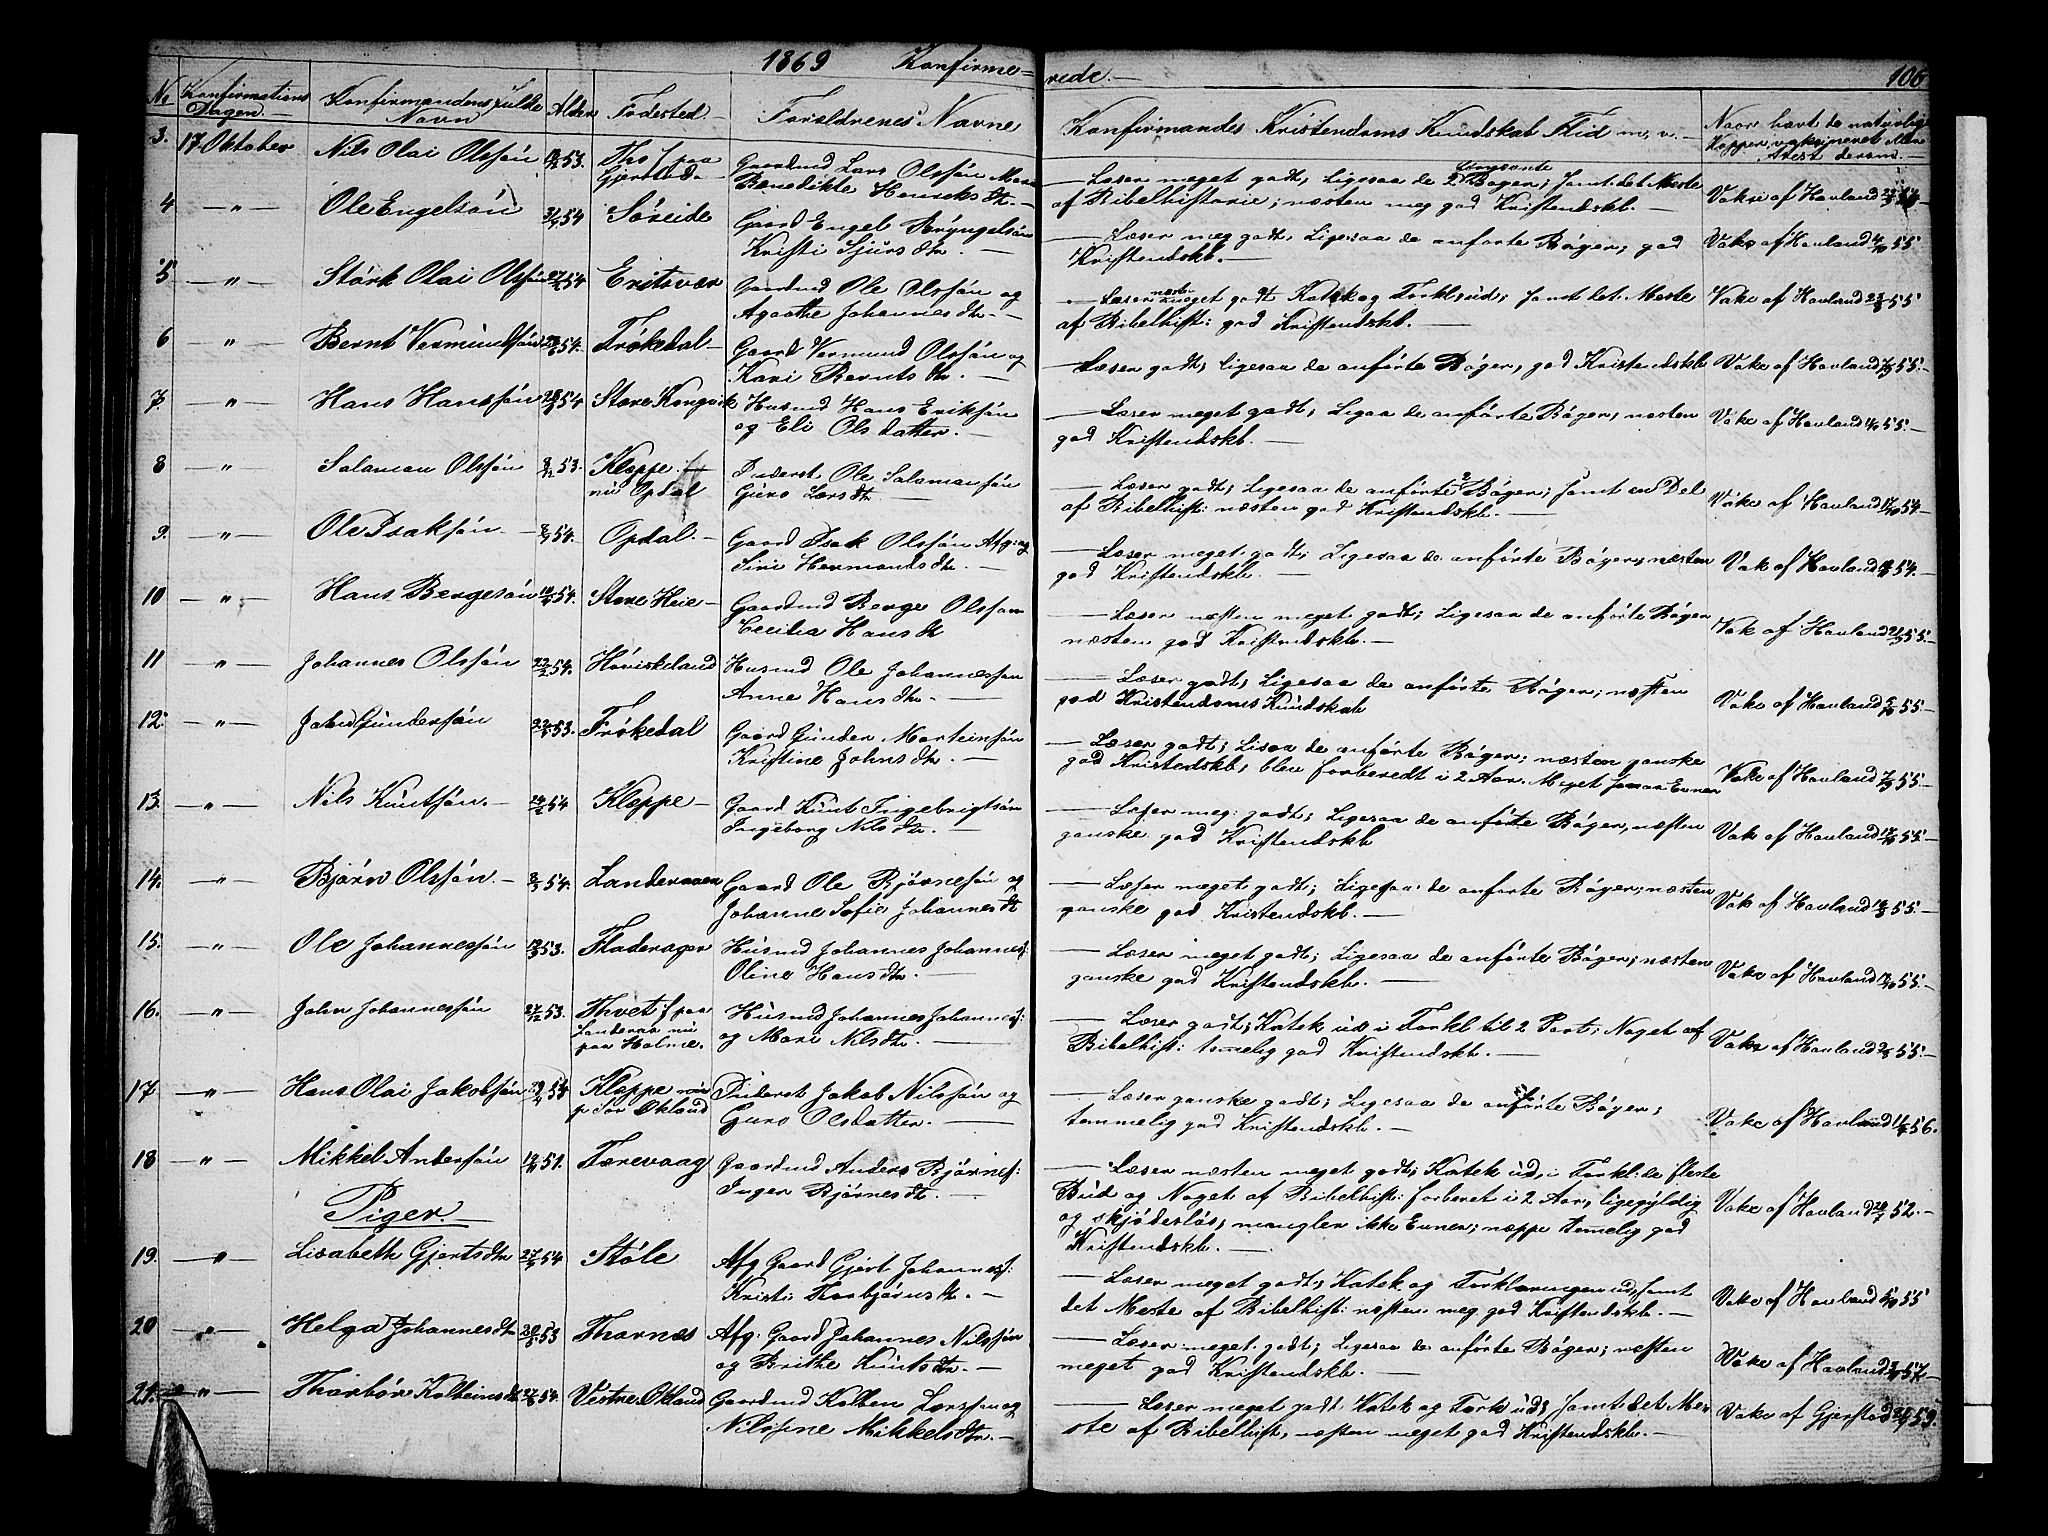 1869 Konfirme=
rede.— 106
No Konfirmations Dagen.— Konfirmandens fulde Navn Alder Fødested.— Forældrenes Navne Konfirmandes Kristendoms Kundskab Flid m. v.— Naar havt de naturlige Kopper, vaksineret Atest derom.—
3. 17 Oktober Nils Olai Olssøn 53. Gaardmd Lars Olssøn
Benedikte Henriksdtr.— — Læser meget godt, Ligesaa de 2 Bøger; samt det Meste
af Bibelhistorie; næsten meg god Kristendskb.— Vaks af Havland
4 —"— Ole Engelsøn 54 Søreide Gaard Engel Brÿngelsøn
Kristi Sjursdtr.— — Læser meg godt, Ligesaa de anførte Bøger; god
Kristendskb.— Vaks af Havland 55.
5 —"— Størk Olai Olssøn 54 Eritsvær Gaardmd Ole Olssøn og
Agaathe Johannesdtr.— — Læser næsten meget godt Katek og Forkl: ud; samt det Meste
af Bibelhist: god Kristendskb.— Vaks af Havland 55
6 —"— Bernt Vermundsøn 54. Frøkedal Gaard Vermund Olssøn og
Kari Berntsdtr.— — Læser godt, Ligesaa de anførte Bøger, god Kristendskb Vaks af Havland 55.—
7. —"— Hans Hanssøn 54 Store Kongsvik Husmd Hans Eriksøn
og Eli Olsdatter.— — Læser meget godt, Ligesaa de anførte Bøger, næsten
god Kristendskb.— Vaks af Havland 55.—
8 —"— Salamon Olssøn 8/12 53. Kleppe.—
nu Opdal Inderst. Ole Salamonsøn
Guro Larsdtr — Læser godt; Ligesaa de anførte 2 Bøger; samt en Del
af Bibelhist: næsten god Kristendskb.— Vaks af Havland 54.—
9. —"— Ole Isaksøn.— 54. Opdal.— Gaard Isak Olssøn Afg: og
Siri Hermundsdtr.— — Læser meget godt; Ligesaa de anførte Bøger, næsten
god Kristendskb.— Vak af Havland 54.—
10 —"— Hans Bergesøn 54. Store Heie— Gaardmd Berge Olssøn
Cecilia Hansdtr — Læser næsten meget godt; Ligesaa de anførte Bøger
næsten god Kristendskb.— Vak af Havland 55.—
11 —"— Johannes Olssøn 54. Høviskeland Husmd Ole Johannessøn
Anne Hansdtr.— — Læser godt, Ligesaa de anførte Bøger; næsten
god Kristendoms Kundskab Vaks af Havland 55.—
12. —"— John Gundersøn 53. Frøkedal Gaard Gunder Morteinsøn
Kristine Johnsdtr.— — Læser godt; Lisaa de anførte Bøger; næsten ganske
god Kristendskb, blev forberedt i 2 Aar. Meget smaa Evner Vaks af Havland 55.—
13. —"— Nils Knutsøn.— 54 Kleppe— Gaard Knut Ingebrigtsøn
Ingeborg Nilsdtr.— — Læser meg: godt; Ligesaa de anførte Bøger, næsten
ganske god Kristendskb Vak af Havland 55.—
14. —"— Bjørn Olssøn.— 54. Landeraaen Gaard Ole Bjørnesøn og
Johanne Sofie Johannesdtr — Læser meget godt; Ligesaa de anførte Bøger; næsten
ganske god Kristendskb.— Vak af Havland 55.—
15. —"— Ole Johannessøn 53. Fladerager Husmd Johannes Johannes:
Oline Hansdtr.— — Læser meget godt; Ligesaa de anførte Bøger; næsten
ganske god Kristendskb.— Vak af Havland 55.—
16. —"— John Johannessøn 53. Thvet f paa
Landeraa nu
paa Holme. Husmd Johannes Johannes:
og Mari Nilsdtr.— — Læser godt; Katek ud i Forkl til 2 Part; Noget af
Bibelhist: temmelig god Kristendskb.— Vaks af Havland 55.—
17. —"— Hans Olai Jakobsøn Kleppe nu
p Sør Økland Inderst Jakob Nilssøn og
Guro Olsdatter.— — Læser ganske godt; Ligesaa de anførte Bøger;
temmelig god Kristendskb.— Vaks af Havland 56.
18 —"— Mikkel Andersøn 51. Færevaag Gaardmd Anders Bjørnes:
Inger Bjørnesdtr.— — Læser næsten meget godt; Katek ud, i Forkl: de fleste
Bud og Noget af Bibelhist: forberet i 2 Aar, ligegyldig
og skjødesløs, mangler ikke Evner; neppe temelig god
Kristendskb.— Vaks af Havland 52.—
Piger.
19. —"— Lisabeth Gjertsdtr 54 Støle Afg Gaard Gjert Johannes:
Kristi Thorbjørnsdtr.— — Læser meget godt; Katek og Forklaringen ud, samt
det Meste af Bibelhist: næsten meg god Kristendskb.— Vaks af Havland 55
20 —"— Helga Johannesdtr 53 Thornæs Afg: Gaard Johannes Nilssøn
og Brithe Knutsdtr.— — Læser meget godt; Ligesaa de anførte Bøger; næsten
meget god Kristendskb.— Vaks af Havland 57.—
21. —"— Thorbør Kolbeinsdtr 54. Vestre Økland Gaardmd Kolben Larssøn og
Nilssine Mikkelsdtr.— — Læser meget godt Katek og Fork ud, samt det Me=
ste af Bibelhist, næsten meget god Kristendskb.— Vaks af Gjerstad 59.